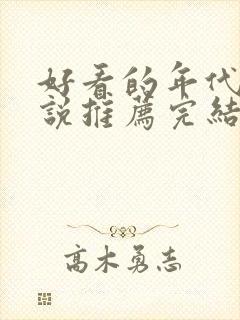 好看的年代
說推薦完結
高木勇志